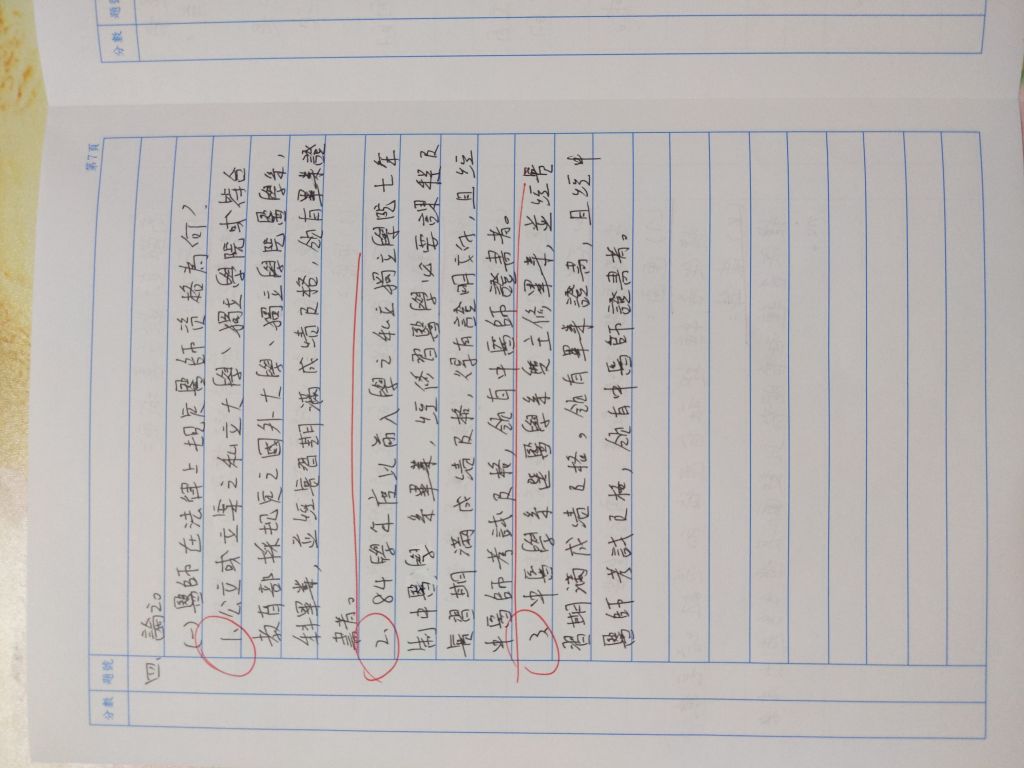 第7頁
分數 題號
四、論述。
(二)醫師在法律上規定醫師資格為何?
1、公立或立案之私立大學、獨立學院或符合
教育部採規定之國外大學、獨立學院醫學系,
科畢業,並經實習期滿成績及格,領有畢業證
書者。
2、84學年度以前入學之私立獨立學院七年
制中醫學系畢業,經修習醫學必要課程及
實習期滿成績及格,得有證明文件,且經
中醫師考試及格,領有中醫師證書者。
3、中醫學系選醫學系雙主修畢業,並經實
習期滿成績及格,領有畢業證書,且經中
醫師考試及格,領有中醫師證書者。
分數 題號